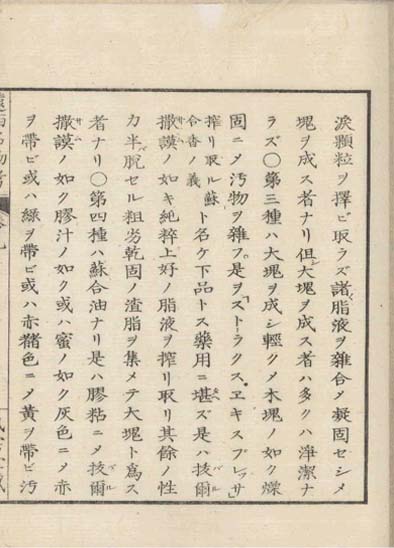 淚顆粒ヲ擇ビ取ラズ諸脂液ヲ雜合メ凝固セシメ
塊ヲ成ス者ナリ但シ大塊ヲ成ス者ハ多クハ淨潔ナ
ラズ〇第三種ハ大塊ヲ成シ輕クメ木塊ノ如ク燥
固ニメ汚物ヲ雜フ是ヲ「ストラクス、エキスプレッサ」
搾リ取ル蘇合香ノ義ト名ケ下品トス藥用ニ堪ズ是ハ拔爾
撒謨ノ如キ純粹上好ノ脂液ヲ搾リ取リ其餘ノ性
力半バ脫セル粗劣乾固ノ渣脂ヲ集メテ大塊ト爲ス
者ナリ〇第四種ハ蘇合油ナリ是ハ膠粘ニメ拔爾
撒謨ノ如ク膠汁ノ如ク或ハ蜜ノ如ク灰色ニメ赤
ヲ帶ビ或ハ綠ヲ帶ビ或ハ赤赭色ニメ黃ヲ帶ビ汚